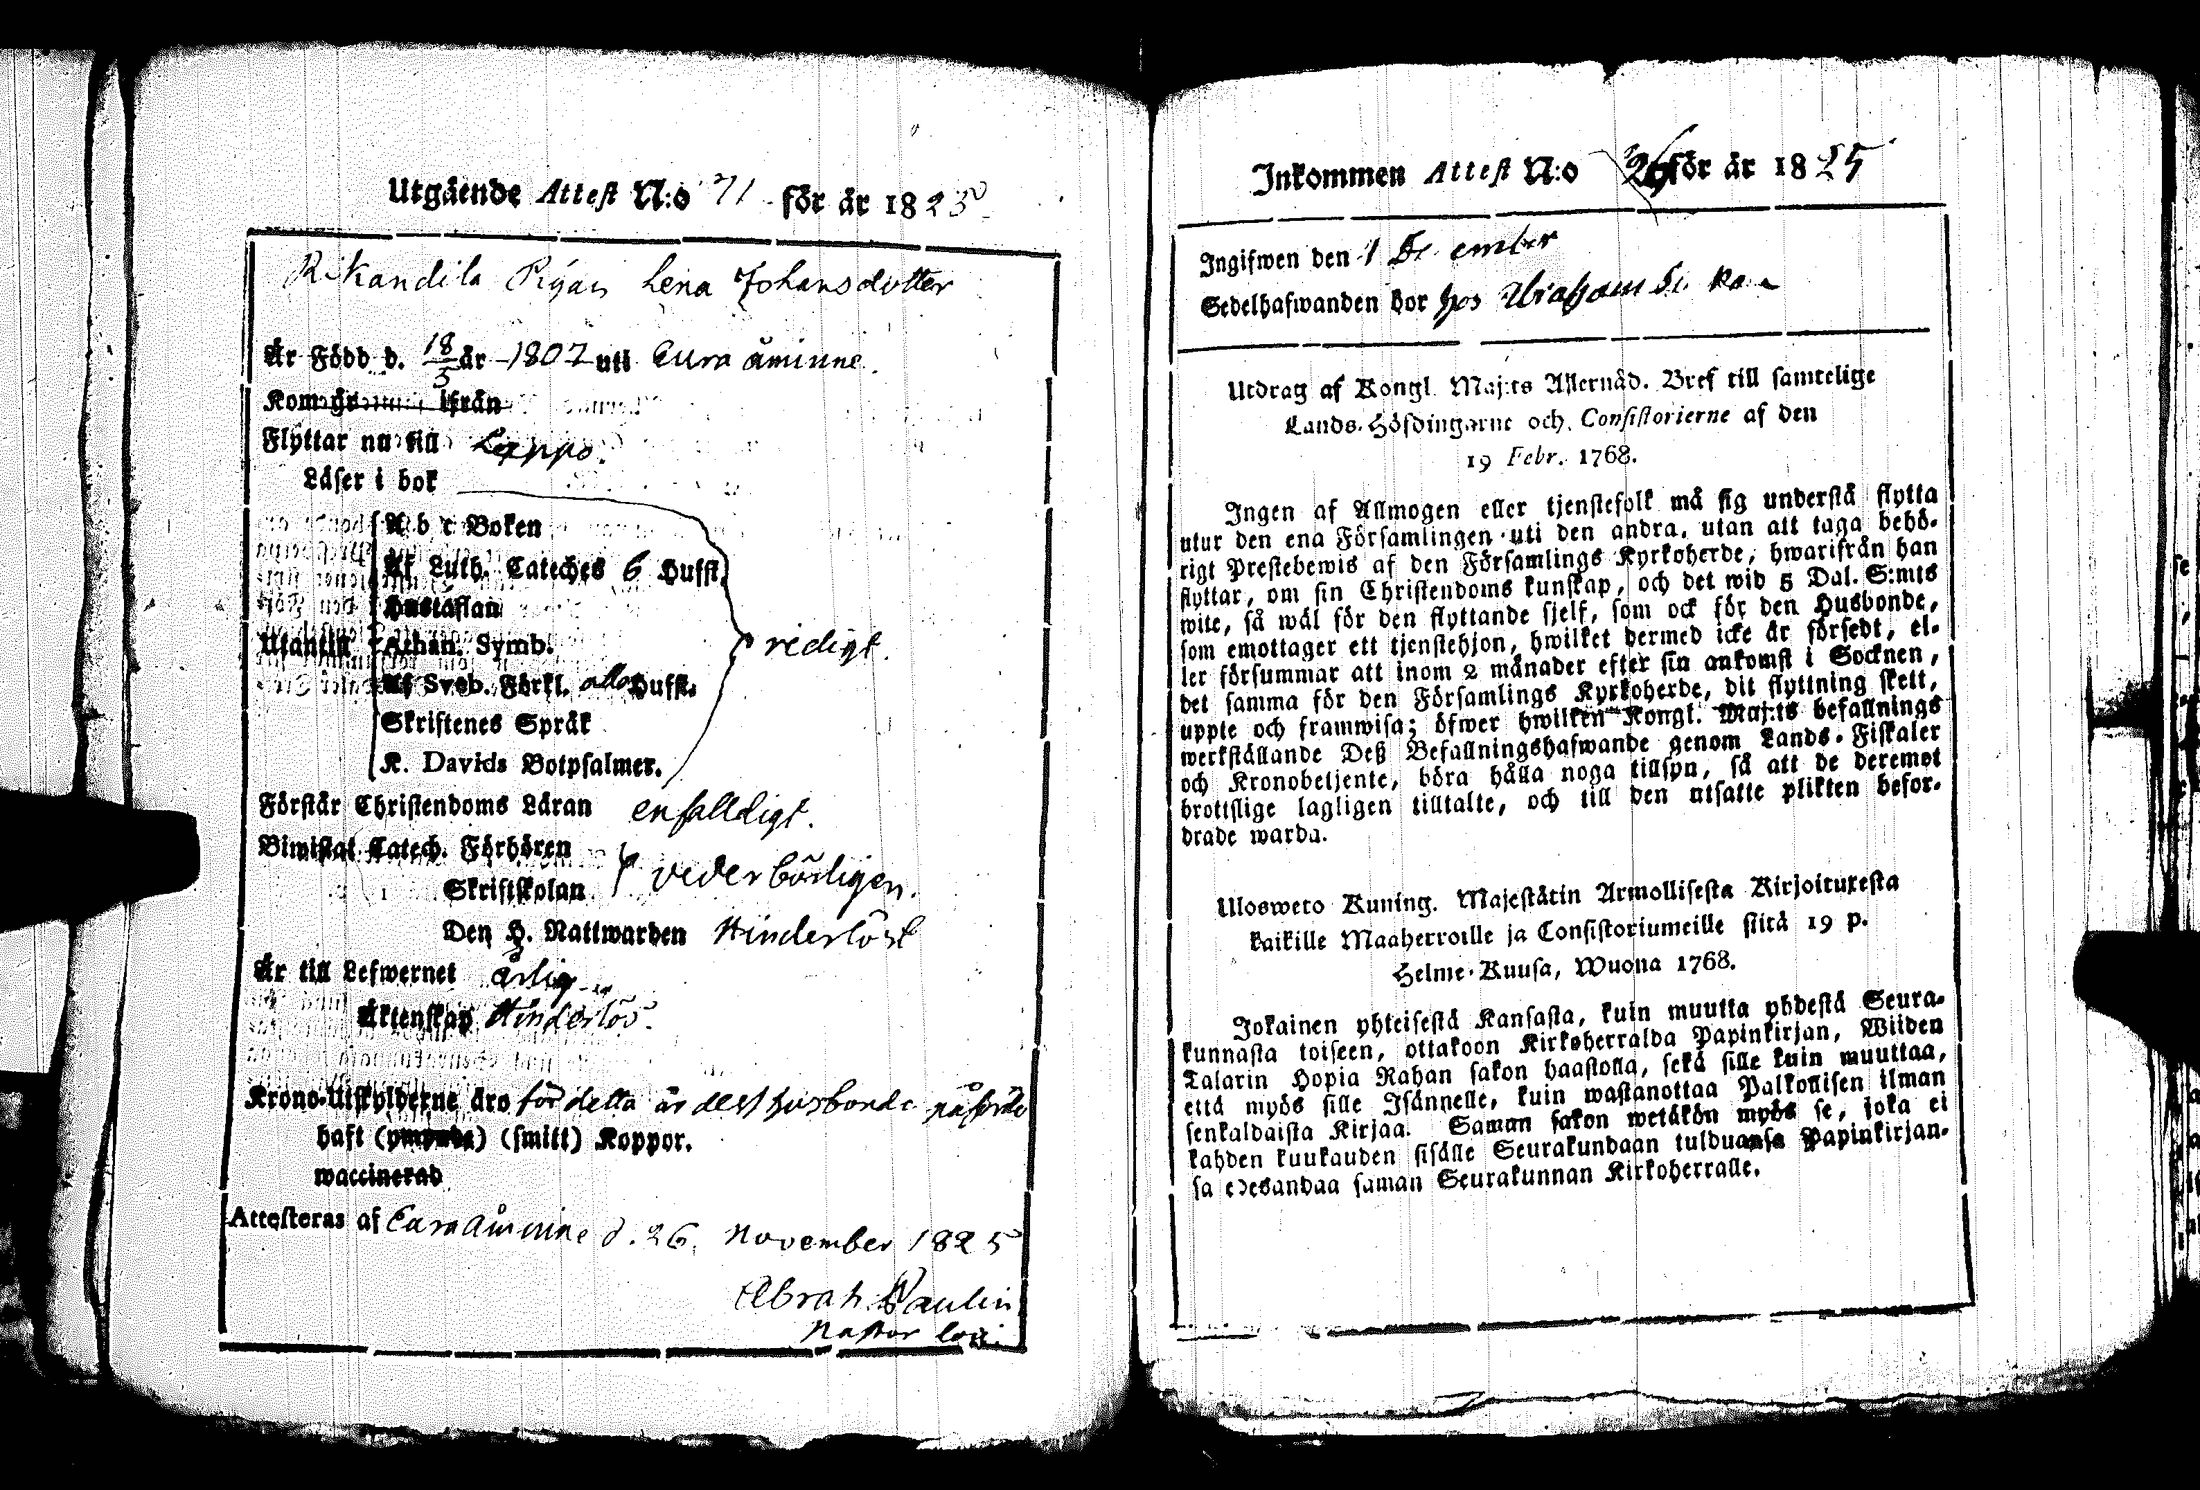 Utgående Attest N:o 71 för år 1825
Rikandila Pigan Lena Johansdotter
Är Född d. 18/5 år 1807 uti Eura åminne.
Kom år ifrån
Flyttar nu till Lappo.
Läser i bok
A b c Boken
Af Luth. Cateches 6 Hufst.
Hustaflan
Utantill Athan. Symb. redigt.
Af Sveb. Förkl. alla Hufst.
Skriftenes Språk
K. Davids Botpsalmer.
Förstår Christendoms Läran enfalldigt.
Biwistat Catech. Förhören
Skriftskolan vederbörligen.
Den H. Nattwarden Hinderlöst
Är till Lefwernet ärlig
Äktenskap Hinderlös.
Krono-Utskylderne äro för detta år dess husbonde påförde
haft (ympade) (smitt) Koppor.
waccinerad
Attesteras af Euraåminne d. 26. November 1825
Abrah. Paulin
Pastor loci.
Inkommen Attest N:o för år 1825
Ingifwen den 1
Sedelhafwanden bor hos Abraham
Utdrag af Kongl. Maj:ts Allernåd. Bref till samtelige
Lands-Höfdingarne och Consistorierne af den
19 Febr. 1768.
Ingen af Allmogen eller tjenstefolk må sig understå flytta
utur den ena Församlingen uti den andra, utan att taga behö-
rigt Prestebewis af den Församlings Kyrkoherde, hwarifrån han
flyttar, om sin Christendoms kunskap, och det wid 5 Dal. S:mts
wite, så wäl för den flyttande sjelf, som ock för den Husbonde,
som emottager ett tjenstehjon, hwilket dermed icke är försedt, el-
ler försummar att inom 2 månader efter sin ankomst i Socknen,
det samma för den Församlings Kyrkoherde, dit flyttning skett,
uppte och framwisa; öfwer hwilken Kongl. Maj:ts befallnings
werkställande Deß Befallningshafwande genom Lands-Fiskaler
och Kronobetjente, böra hålla noga tillsyn, så att de deremot
brottslige lagligen tilltalte, och till den utsatte plikten befor-
drade warda.
Ulosweto Kuning. Majestätin Armollisesta Kirjoituxesta
kaikille Maaherroille ja Consistoriumeille siitä 19 p.
Helme-Kuusa, Wuona 1768.
Jokainen yhteisestä Kansasta, kuin muutta yhdestä Seura-
kunnasta toiseen, ottakoon Kirkoherralda Papinkirjan, Wiiden
Talarin Hopia Rahan sakon haastolla, sekä sille kuin muuttaa,
että myös sille Isännelle, kuin wastanottaa Palkollisen ilman
senkaldaista Kirjaa. Saman sakon wetäkön myös se, joka ei
kahden kuukauden sisälle Seurakundaan tulduansa Papinkirjan-
sa edesandaa saman Seurakunnan Kirkoherralle.